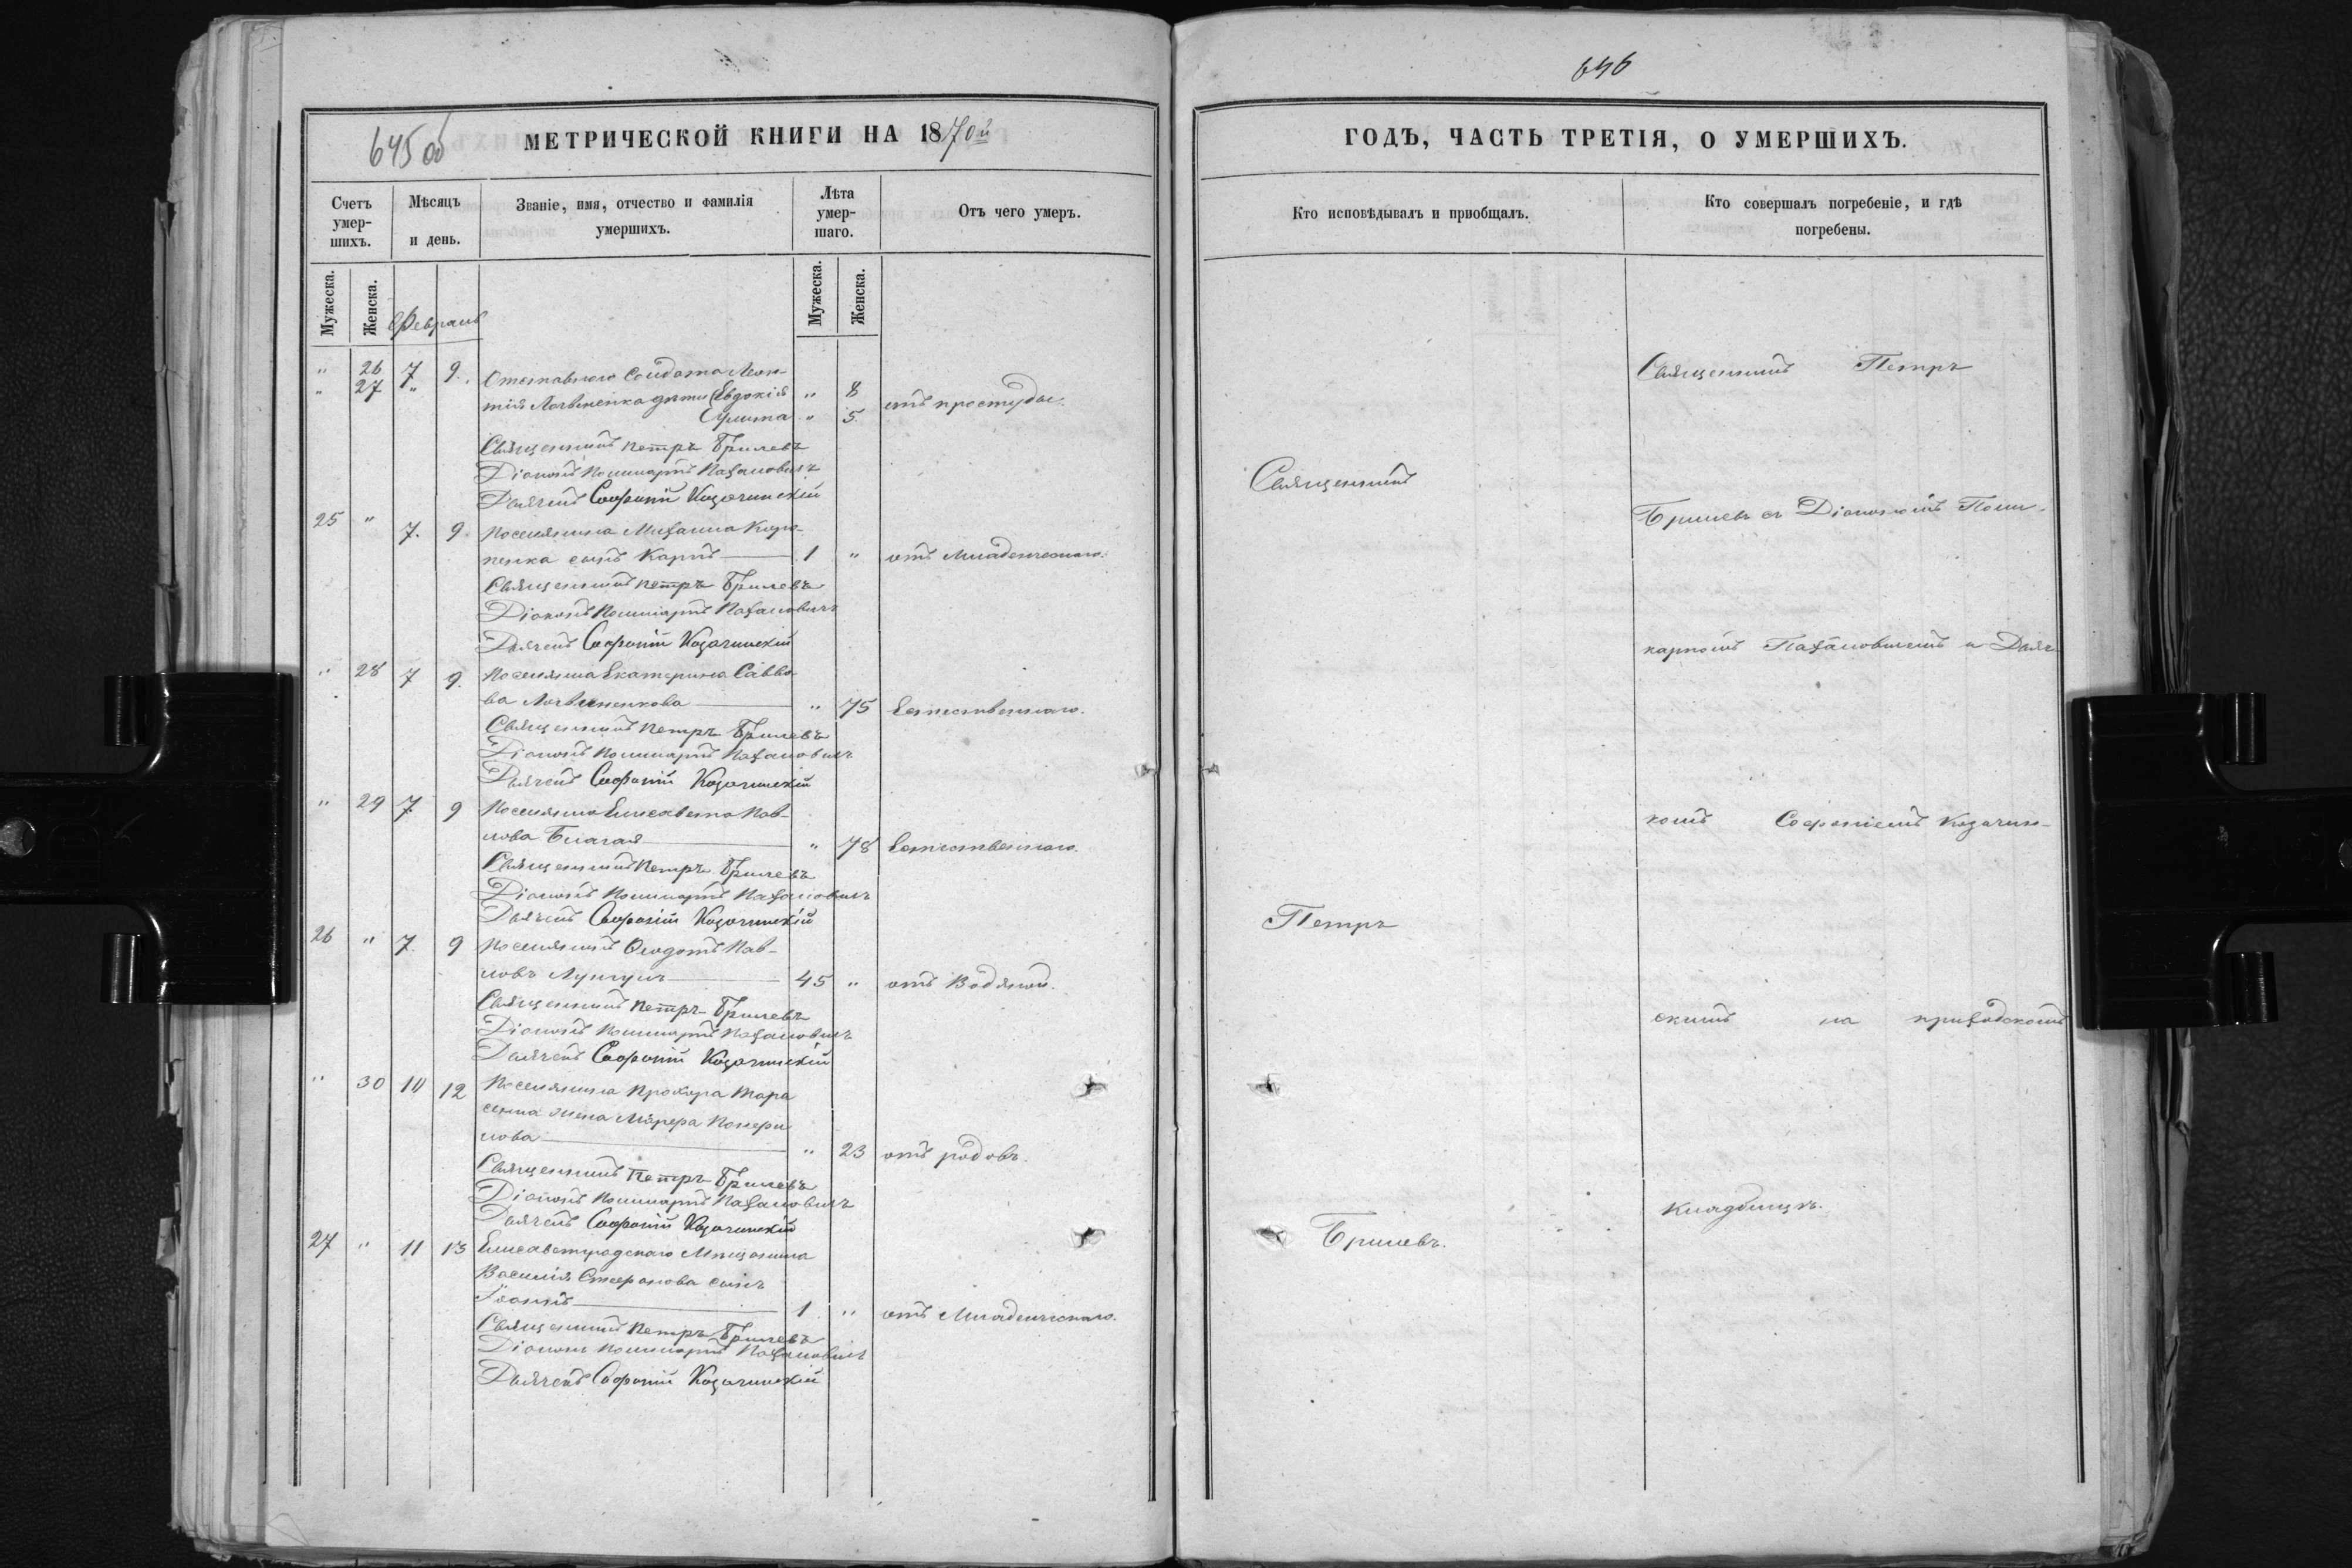 645 об
МЕТРИЧЕСКОЙ КНИГИ НА 1870й
Счетъ умер-шихъ.
Мѣсяцъ и день.
Званіе, имя, отчество и фамилія умершихъ.
Лѣта умер-шаго.
Отъ чего умеръ.
Мужеска.
Женска.
Февраль
Мужеска.
Женска.
" 26 7 9. Отставного Солдата Леон-
" 27 " тія Логвиненка дѣти Евдокія " 8 отъ простуды.
" 5.
Священникъ Петръ Брилевъ
Діаконъ Поликарпъ Пахаловичъ
Дьячекъ Софоній Козачинскій
25 " 7. 9. Поселянина Михаила Карп-
пенка сынъ Карпъ 1 " отъ Младенческаго.
Священникъ Петръ Брилевъ
Діаконъ Поликарпъ Пахаловичъ
Дьячекъ Софоній Козачинскій
" 28 7 9. Поселянка Екатерина Савво-
ва Логвиненкова " 75 Естественнаго.
Священникъ Петръ Брилевъ
Діаконъ Поликарпъ Пахаловичъ
Дьячекъ Софоній Козачинскій
" 29 7 9 Поселянка Елисавета Пав-
лова Благая " 78 Естественнаго.
Священникъ Петръ Брилевъ
Діаконъ Поликарпъ Пахаловичъ
Дьячекъ Софоній Козачинскій
26 " 7. 9 Поселянинъ Ѳеодотъ Пав-
ловъ 45 " отъ Водяной.
Священникъ Петръ Брилевъ
Діаконъ Поликарпъ Пахаловичъ
Дьячекъ Софоній Козачинскій
" 30 10 12 Поселянина Прохора Тара
жена Марфа
лова " 23 отъ родовъ.
Священникъ Петръ Брилевъ
Діаконъ Поликарпъ Пахаловичъ
Дьячекъ Софоній Козачинскій
27 " 11 13 Елисаветградскаго Мѣщанина
Василія Стефанова сынъ
Іоаннъ 1 " отъ Младенческаго.
Священникъ Петръ Брилевъ
Діаконъ Поликарпъ Пахаловичъ
Дьячекъ Софоній Козачинскій
646
ГОДЪ, ЧАСТЬ ТРЕТІЯ, О УМЕРШИХЪ.
Кто исповѣдывалъ и пріобщалъ.
Кто совершалъ погребеніе, и гдѣ погребены.
Священникъ
Петръ
Брилевъ.
Священникъ Петръ
Брилевъ съ Діакономъ Поли-
карпомъ Пахаловичемъ и Дьяч-
комъ Софоніемъ Козачин-
скимъ на приходскомъ
кладбищѣ.